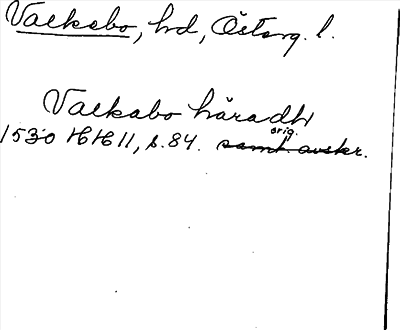 Valkebo, hd, Österg. l.
Valkabo häradh
orig.
1530 HH 11, s. 84. samt. avskr.